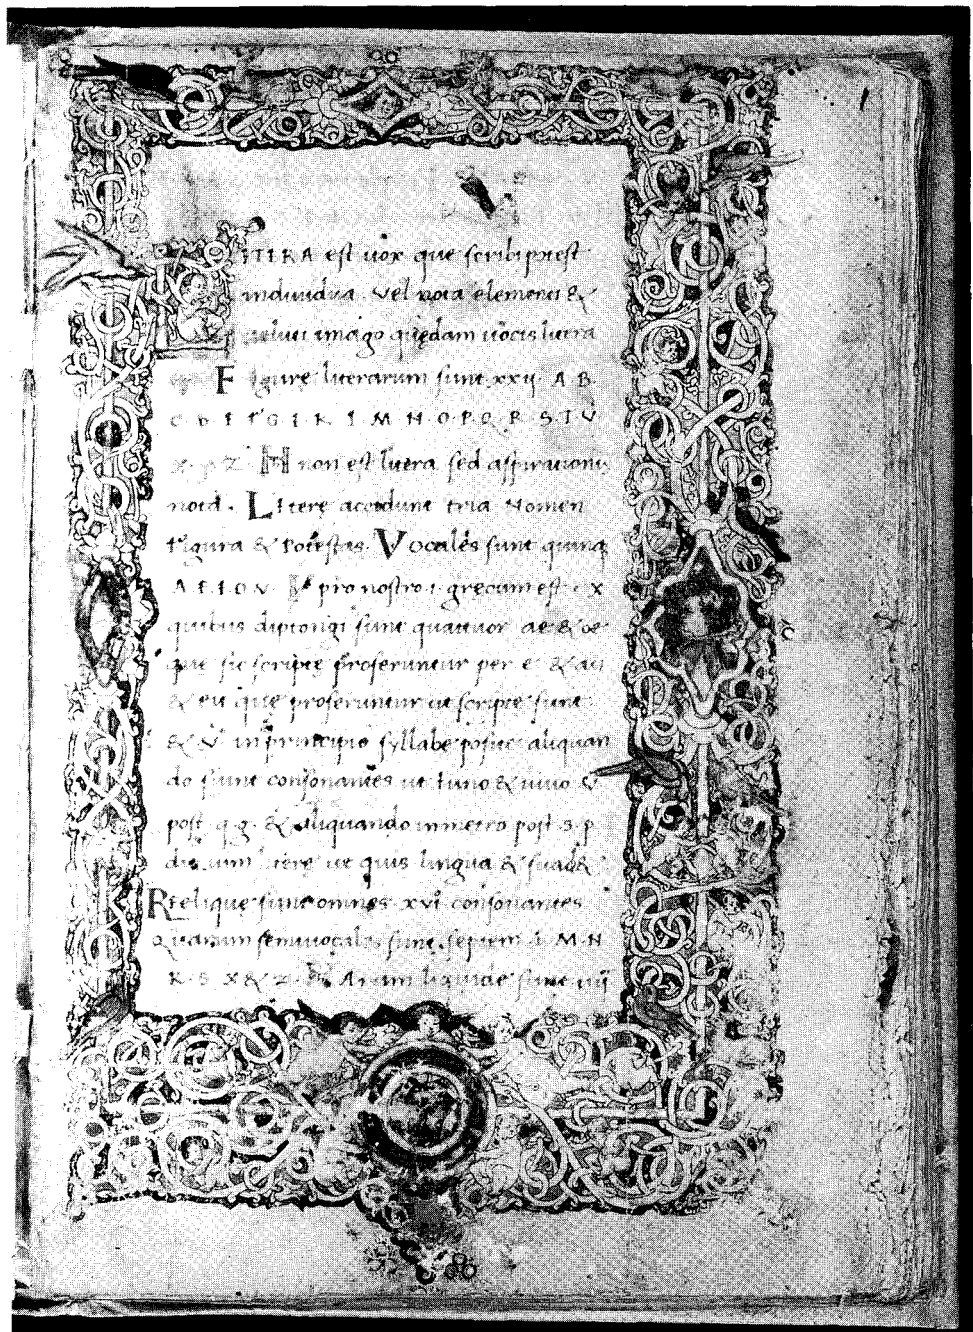 LITERA est uox que scribi potest
indiuidua. Vel nota elementi &
ueluti imago quędam uocis litera
Figure literarum sunt xxij. A B
C D E F G I K L M N O P Q R S T V
X Y Z. H non est litera sed aspirationis
nota. Litere accidunt tria Nomen
Figura & Potestas. Vocales sunt quinq
A E I O V. pro nostro i. grecum est. ex
quibus diptongi sunt quattuor ae & oe
que sic scripte proferuntur per e & au
& eu que proferuntur ut scripte sunt
& V in principio syllabe posite aliquan
do sunt consonantes ut iuno & uiuo &
post q g. & aliquando in metro post s. p
ut quis lingua & suadet
Relique sunt omnes xvi consonantes
Quarum semiuocales sunt septem L M N
R S X & Z. Harum liquide sunt iiij